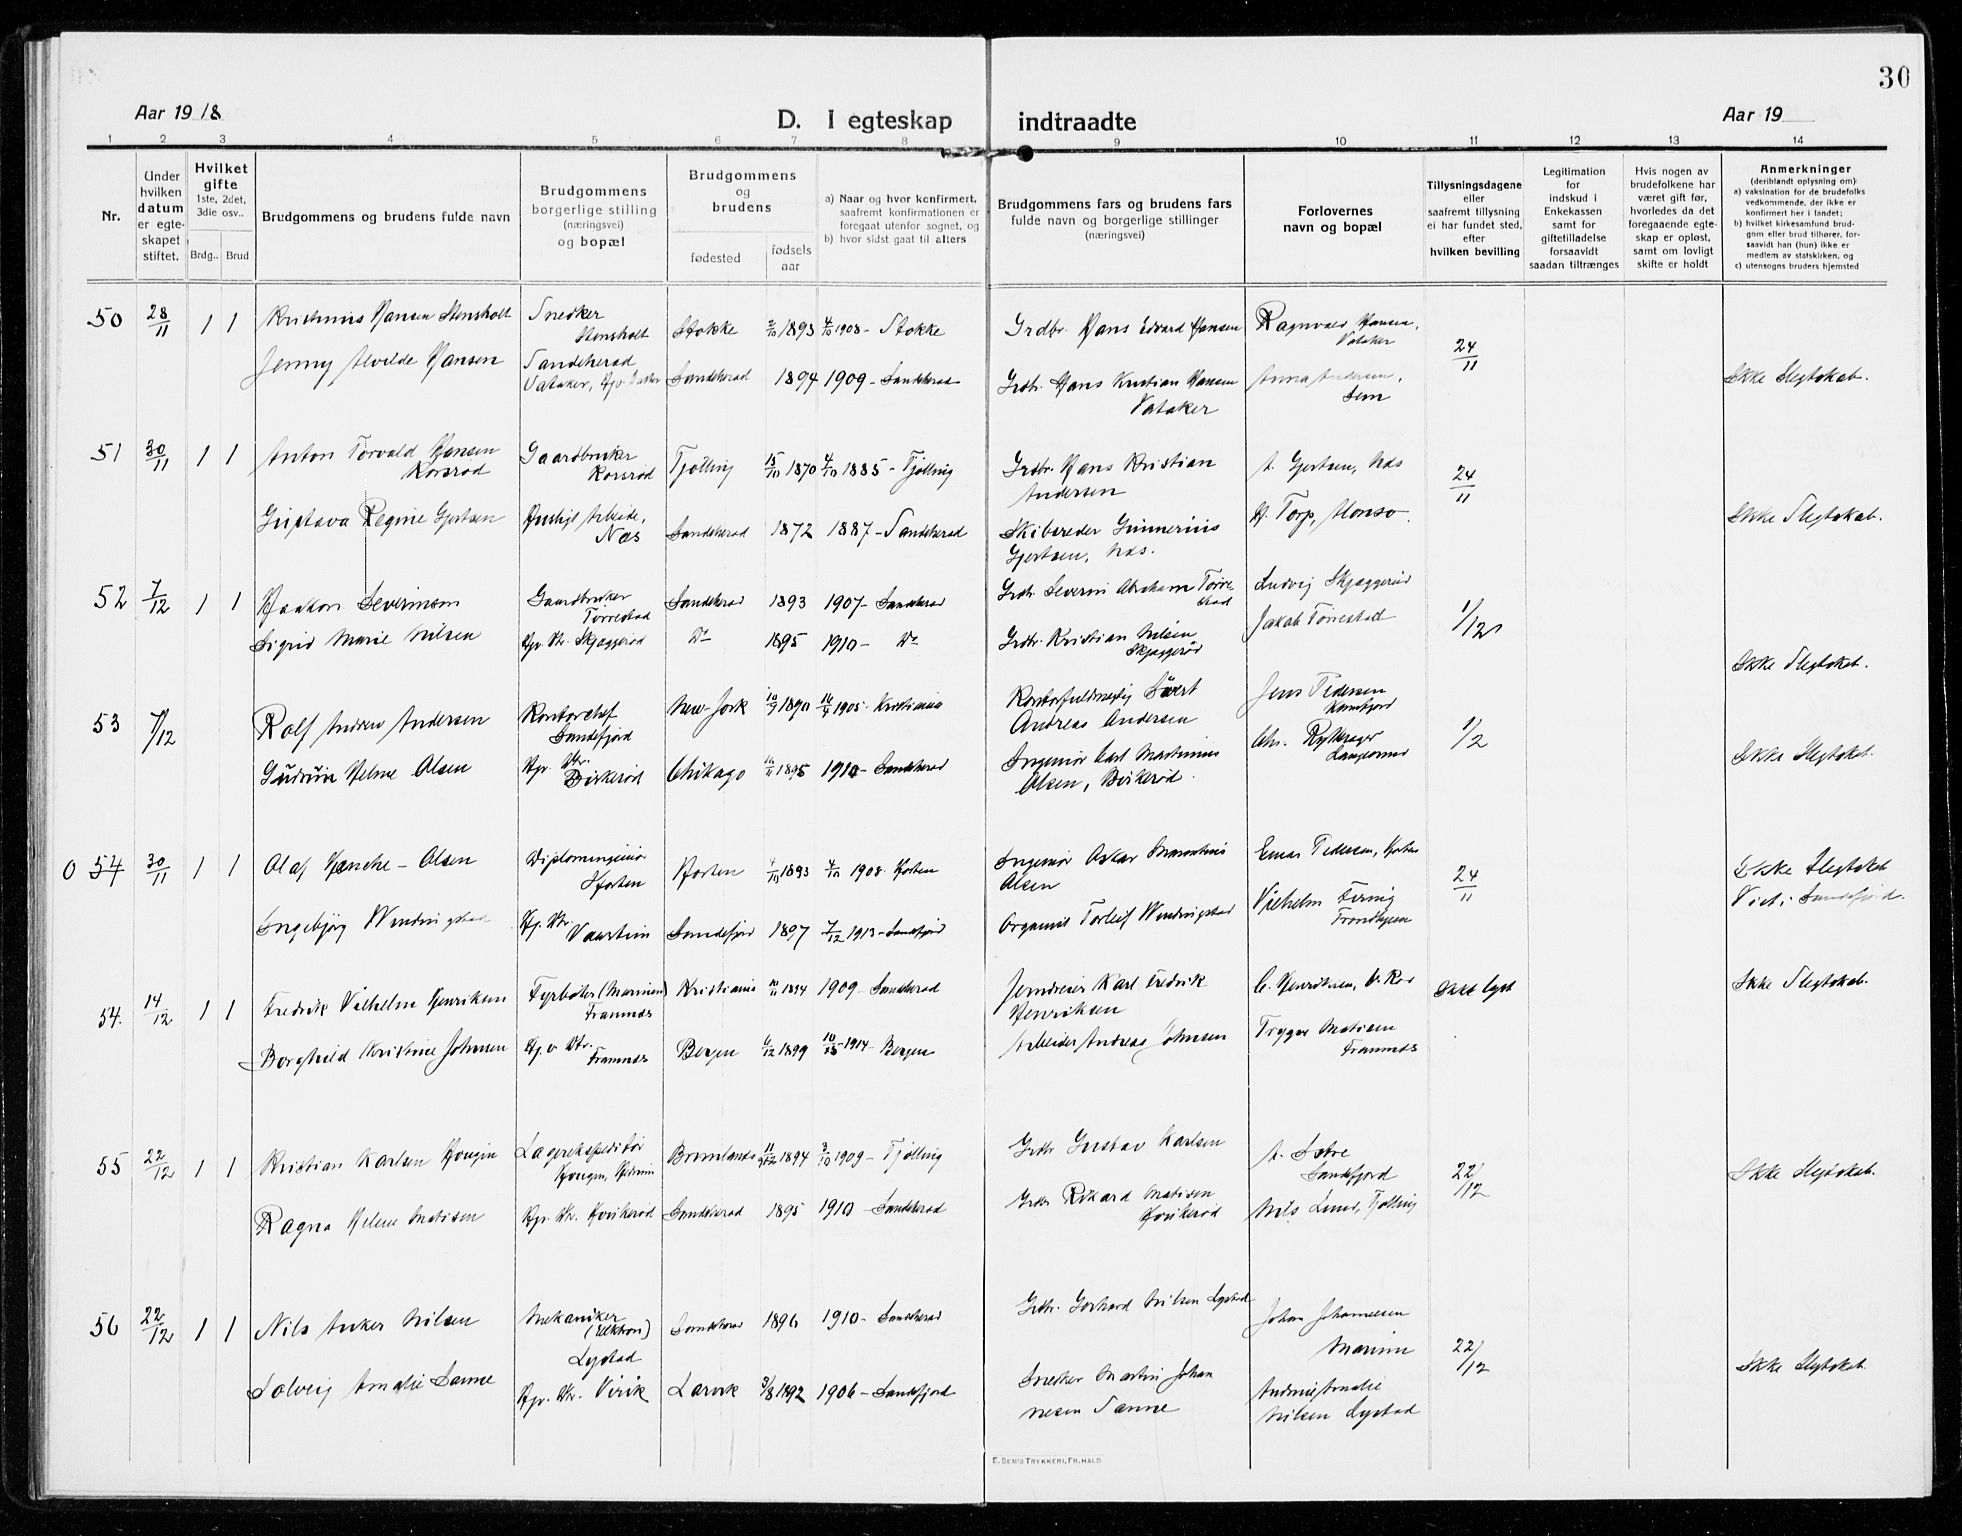 30
Aar 1918
D. I egteskap indtraadte
Aar 19
1 2 3 4 5 6 7 8 9 10 11 12 13 14
Nr.
Under hvilken datum er egteskapet stiftet.
Hvilket gifte 1ste, 2det, 3die osv..
Brdg.. Brud
Brudgommens og brudens fulde navn
Brudgommens borgerlige stilling (næringsvei) og bopæl
Brudgommens og brudens
fødested
fødselsaar
a) Naar og hvor konfirmert, saafremt konfirmationen er foregaat utenfor sognet, og
b) hvor sidst gaat til alters
Brudgommens fars og brudens fars fulde navn og borgerlige stillinger (næringsvei)
Forlovernes navn og bopæl
Tillysningsdagene eller saafremt tillysning ei har fundet sted, efter hvilken bevilling
Legitimation for indskud i Enkekassen samt for giftetilladelse forsaavidt saadan tiltrænges
Hvis nogen av brudefolkene har været gift før, hvorledes da det foregaaende egteskap er opløst, samt om lovligt skifte er holdt
Anmerkninger
(deriblandt oplysning om:
a) vaksination for de brudefolks vedkommende, der ikke er konfirmert her i landet;
b) hvilket kirkesamfund brudgom eller brud tilhører, forsaavidt han (hun) ikke er medlem av statskirken, og
c) utensogns bruders hjemsted
50 28/11 1 1 Hansen Stensholt Snedker Stensholt Stokke 1893 1908 - Stokke Grdbr. Hans Edvard Hansen Ragnvald Hansen, Vataker 24/11
Jenny Alvilde Hansen Sandeherad Vataker, Sandeherad 1894 1909 - Sandeherad Grdbr. Hans Kristian Hansen Vataker Anna Andersen, Sem Ikke Slegtskab.
51 30/11 1 1 Anton Torvald Hansen Korsrød Gaardbruker Korsrød Tjølling 15/11 1870 4/10 1885 - Tjølling Grdbr. Hans Kristian Andersen A. Gjertsen, Næs 24/11
Gustava Regine Gjertsen Næs Sandeherad 1872 1887 - Sandeherad Skibsreder Gunnerius Gjertsen, Næs. Torp, Ikke Slegtskab.
52 7/12 1 1 Haakon Severinsen Gaardbruker Tørrestad Sandeherad 1893 1907 - Sandeherad Grdbr. Severin Abraham Tørrestad Ludvig Skjæggerød 1/12
Sigrid Marie Nilsen Hjv. Vbr. Skjæggerød Do 1895 1910 - Do Grdbr. Kristian Nilsen Skjæggerød Jakob Tørrestad Ikke Slegtskab.
53 7/12 Rolf Andreas Andersen Kontorchef Sandefjord New-Jork 10/9 1890 14/4 1905 - Kristiania Andreas Andersen Jens Pedersen 1/12
Gudrun Helene Olsen Chikago 1895 1910 - Sandeherad Ingeniør Carl Martinius Olsen, Chr. Rytterager Ikke Slegtskab.
0 54 30/11 1 1 Olaf Hanche-Olsen Diplomingeniør Horten Horten 1893 4/10 1908 Horten Ingeniør Oskar Olsen Einar Pedersen, Horten 24/11 Ikke Slegtskab
Ingebjørg Windingstad Sandefjord 1897 7/12 1913 - Sandefjord Organist Torleif Windingstad Vilhelm Trondhjem Viet i Sandefjord.
54. 14/12 1 1 Fredrik Vilhelm Henriksen Fyrbøter (Marinen) Framnæs Kristiania 1894 1909 - Sandeherad Karl Fredrik Henriksen C. Henriksen, Ikke lyst Ikke Slegtskab.
Borghild Kristine Johnsen Framnæs Bergen 6/12 1899 1914 - Bergen Arbeider Andreas Johnsen Trygve Matisen Framnæs
55 22/12 1 1 Kristian Karlsen Haugen Lagerekspeditør Brunlanes 1894 3/10 1909 - Tjølling Grdbr. Gustav Karlsen Sandefjord 22/12
Ragna Helene Matisen Hjv. Vbr. Hvikerød Sandeherad 1895 1910 - Sandeherad Grdbr. Rikard Matisen Hvikerød Nils Lund, Tjølling Ikke Slegtskab.
56 22/12 1 1 Nils Anker Nilsen Mekaniker Lystad Sandeherad 1896 1910 - Sandeherad Grdbr. Gerhard Nilsen Lystad Johan Johannesen 22/12
Solveig Amalie Sanne Hjv. Vbr. Virik Larvik 3/8 1892 1906 - Sandefjord Snedker Martin Johannesen Sanne Nilsen Lystad Ikke Slegtskab.
E. SEM'S TRYKKERI, FR.HALD